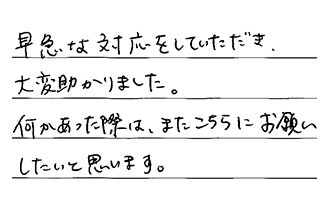 早急な対応をしていただき、
大変助かりました。
何かあった際は、またこちらにお願い
したいと思います。